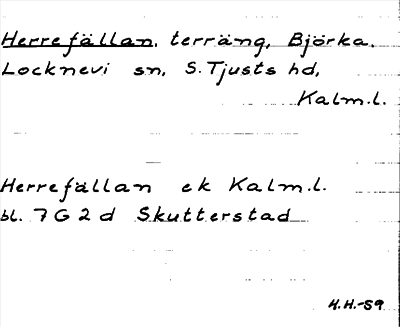 Herrefällan, terräng, Björka,
Locknevi sn, S. Tjusts hd,
Kalm.l.
Herrefällan ek Kalm.l.
bl. 7 G 2 d Skutterstad
H.H.-59